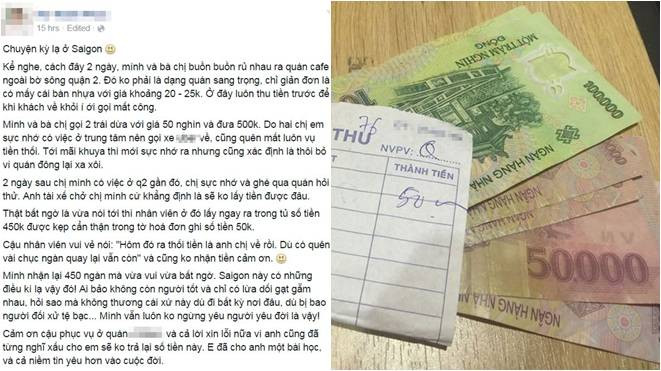 15 hrs · Edited ·
Chuyện kỳ lạ ở Saigon
Kể nghe, cách đây 2 ngày, mình và bà chị buồn buồn rủ nhau ra quán cafe
ngoài bờ sông quận 2. Đó ko phải là dạng quán sang trọng, chỉ giản đơn là
có mấy cái bàn nhựa với giá khoảng 20 - 25k. Ở đây luôn thu tiền trước để
khi khách về khỏi í ới gọi mất công.
Mình và bà chị gọi 2 trái dừa với giá 50 nghìn và đưa 500k. Do hai chị em
sực nhớ có việc ở trung tâm nên gọi xe về, cũng quên mất luôn vụ
tiền thối. Tới mãi khuya thì mới sực nhớ ra nhưng cũng xác định là thôi bỏ
vì quán đông lại xa xôi.
2 ngày sau chị mình có việc ở q2 gần đó, chị sực nhớ và ghé qua quán hỏi
thử. Anh tài xế chở chị mình cứ khẳng định là sẽ ko lấy tiền được đâu.
Thật bất ngờ là vừa nói tới thì nhân viên ở đó lấy ngay ra trong tủ số tiền
450k được kẹp cẩn thận trong tờ hoá đơn ghi số tiền 50k.
Cậu nhân viên vui vẻ nói: "Hôm đó ra thối tiền là anh chị về rồi. Dù có quên
vài chục ngàn quay lại vẫn còn" và cũng ko nhận tiền cảm ơn.
Mình nhận lại 450 ngàn mà vừa vui vừa bất ngờ. Saigon này có những
điều kì lạ vậy đó! Ai bảo không còn người tốt và chỉ có lừa dối gạt gẫm
nhau, hỏi sao mà không thương cái xứ này dù đi bất kỳ nơi đâu, dù bị bao
người đối xử tệ bạc... Mình vẫn luôn ko ngừng yêu người yêu đời là vậy!
Cảm ơn cậu phục vụ ở quán và cả lời xin lỗi nữa vì anh cũng đã
từng nghĩ xấu cho em sẽ ko trả lại số tiền này. E đã cho anh một bài học,
và cả niềm tin yêu hơn vào cuộc đời.
MỘT TRĂM NGHÌN
ĐỒNG
100.000
NGÂN HÀNG NHÀ
THƯ 76
NVPV:
THÀNH TIỀN
50
NGÂN HÀNG NHÀ
50.000
NGÂN HÀNG NHÀ